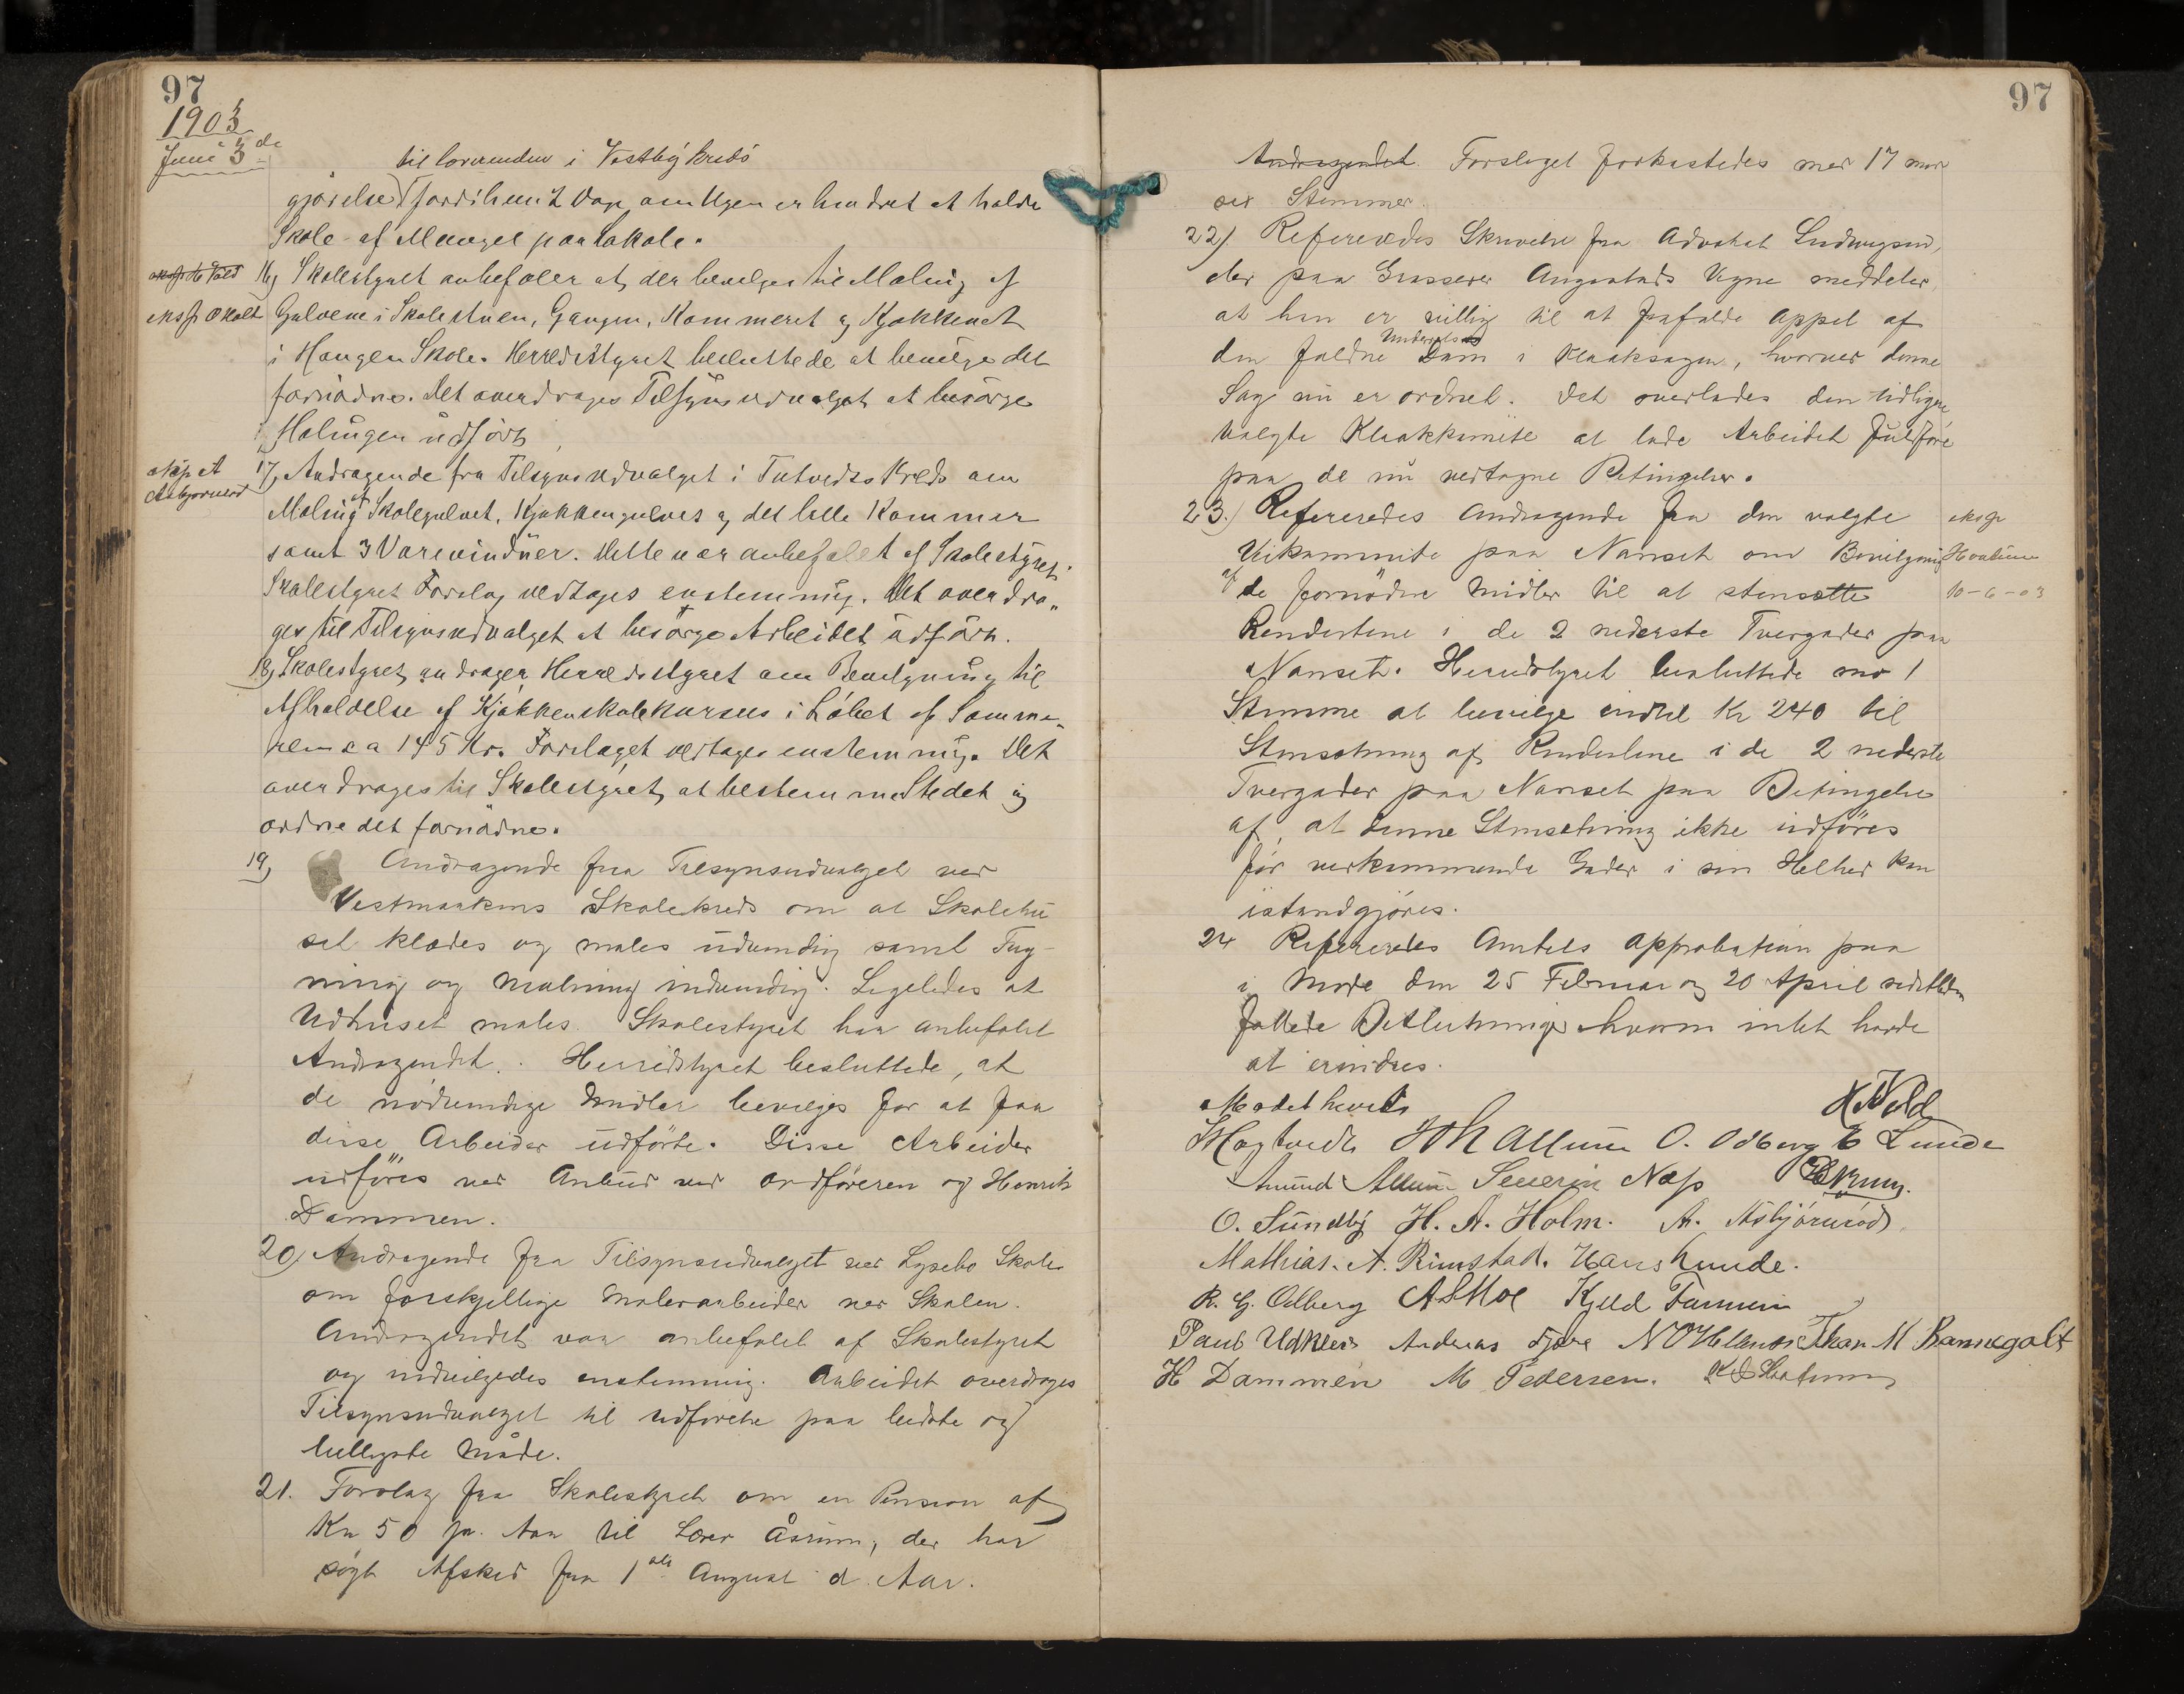 97
1903
Juni 3de
til lovenden i Vestby Kreds
gjørelse fordi hun 2 Dage om Ugen er hindret at holde
Skole af Mangel paa Lokale.
16, Skolestyret anbefaler at der bevilges til Maling af
eksp O Holt
Gulvene i Skolestuen, Gangen, Kammeret og Kjøkkenet
i Haugen Skole. Herredsstyret besluttede at bevilge det
fornødne. Det overdrages Tilsynsudvalget at besørge
Malingen udført
eksp A
Asbjørnrød
17, Andragende fra Tilsynsudvalget i Tutvedts Kreds om
Maling af Skolegulvet, Kjøkkengulvet og det lille Kammer
samt 3 Varevinduer. Dette var anbefalet af Skolestyret
Skolestyret Forslag vedtages enstemmig. Det overdra„
ges til Tilsynsudvalget at besørge Arbeidet udført.
18, Skolestyret andrager Herredsstyret om Bevilgning til
Afholdelse af Kjøkkenskolekursus i Løbet af Somme„
ren ca 145 Kr. Forslaget vedtages enstemmig. Det
overdrages til Skolestyret at bestemme Stedet og
ordne det fornødne.
19, Andragende fra Tilsynsudvalget ved
Vestmarkens Skolekreds om at Skolehu
set klædes og males udvendig samt Tag-
ning og Malning indvendig. Ligeledes at
Udhuset males. Skolestyret har anbefalet
Andragendet. Herredstyret besluttede, at
de nødvendige Midler bevilges for at faa
disse Arbeider udførte. Disse Arbeider
udføres ved Anbud ved Ordføreren og Henrik
Dammen.
20, Andragende fra Tilsynsudvalget ved Lysebo Skole
om forskjellige Malerarbeider ved Skolen.
Andragendet var anbefalet af Skolestyret
og indvilgedes enstemmig. Arbeidet overdrages
Tilsynsudvalget til Udførelse paa bedste og
billigste Måde.
21. Forslag fra Skolestyret om en Pension af
Kr 50 pr. Aar til Lærer Åsrum, der har
søgt Afsked fra 1ste August d. Aar.
97
Andragendet Forslaget forkastedes med 17 mod
sex Stemmer.
22) Refereredes Skrivelse fra Advokat Ludvigsen,
der paa Grosserer Vegne meddeler,
at han er villig til at frafalde Appel af
den faldne Underrets Dom i Kloaksagen, hvorved denne
Sag nu er ordnet. Det overlades den tidligere
valgte Kloakkomite at lade Arbeidet fuldføre
paa de nu vedtagne Betingelser.
23.) Refereredes Andragende fra den valgte
eksp
Veikommite paa Nanset om Bevilgning
af de fornødne Midler til at stensætte
10-6-03
Rendestene i de 2 nederste Tvergader paa
Nanset. Herredstyret besluttede mod 1
Stemme at bevilge indtil Kr 240 til
Stensætning af Rendestene i de 2 nederste
Tvergader paa Nanset paa Betingelse
af, at denne Stensætning ikke udføres
før vedkommende Gader i sin Helhed kan
istandgjøres.
24 Refereredes Amtets Approbation paa
i Møde den 25 Februar og 20 April
fattede Beslutninger hvorom intet havde
at erindres.
Mødet hævet
Hogtvedt Joh Allum O. Odberg E Lunde
Amund Allum Severin Næss
O. Sundby H. A. Holm. A. Asbjørnrød
Mathias. A. Rimstad. Hans Lunde.
R. G. Odberg A S Moe Kjeld Farmen
Paul Andreas N O Helland M Bannegolt
H Dammen M Pedersen.